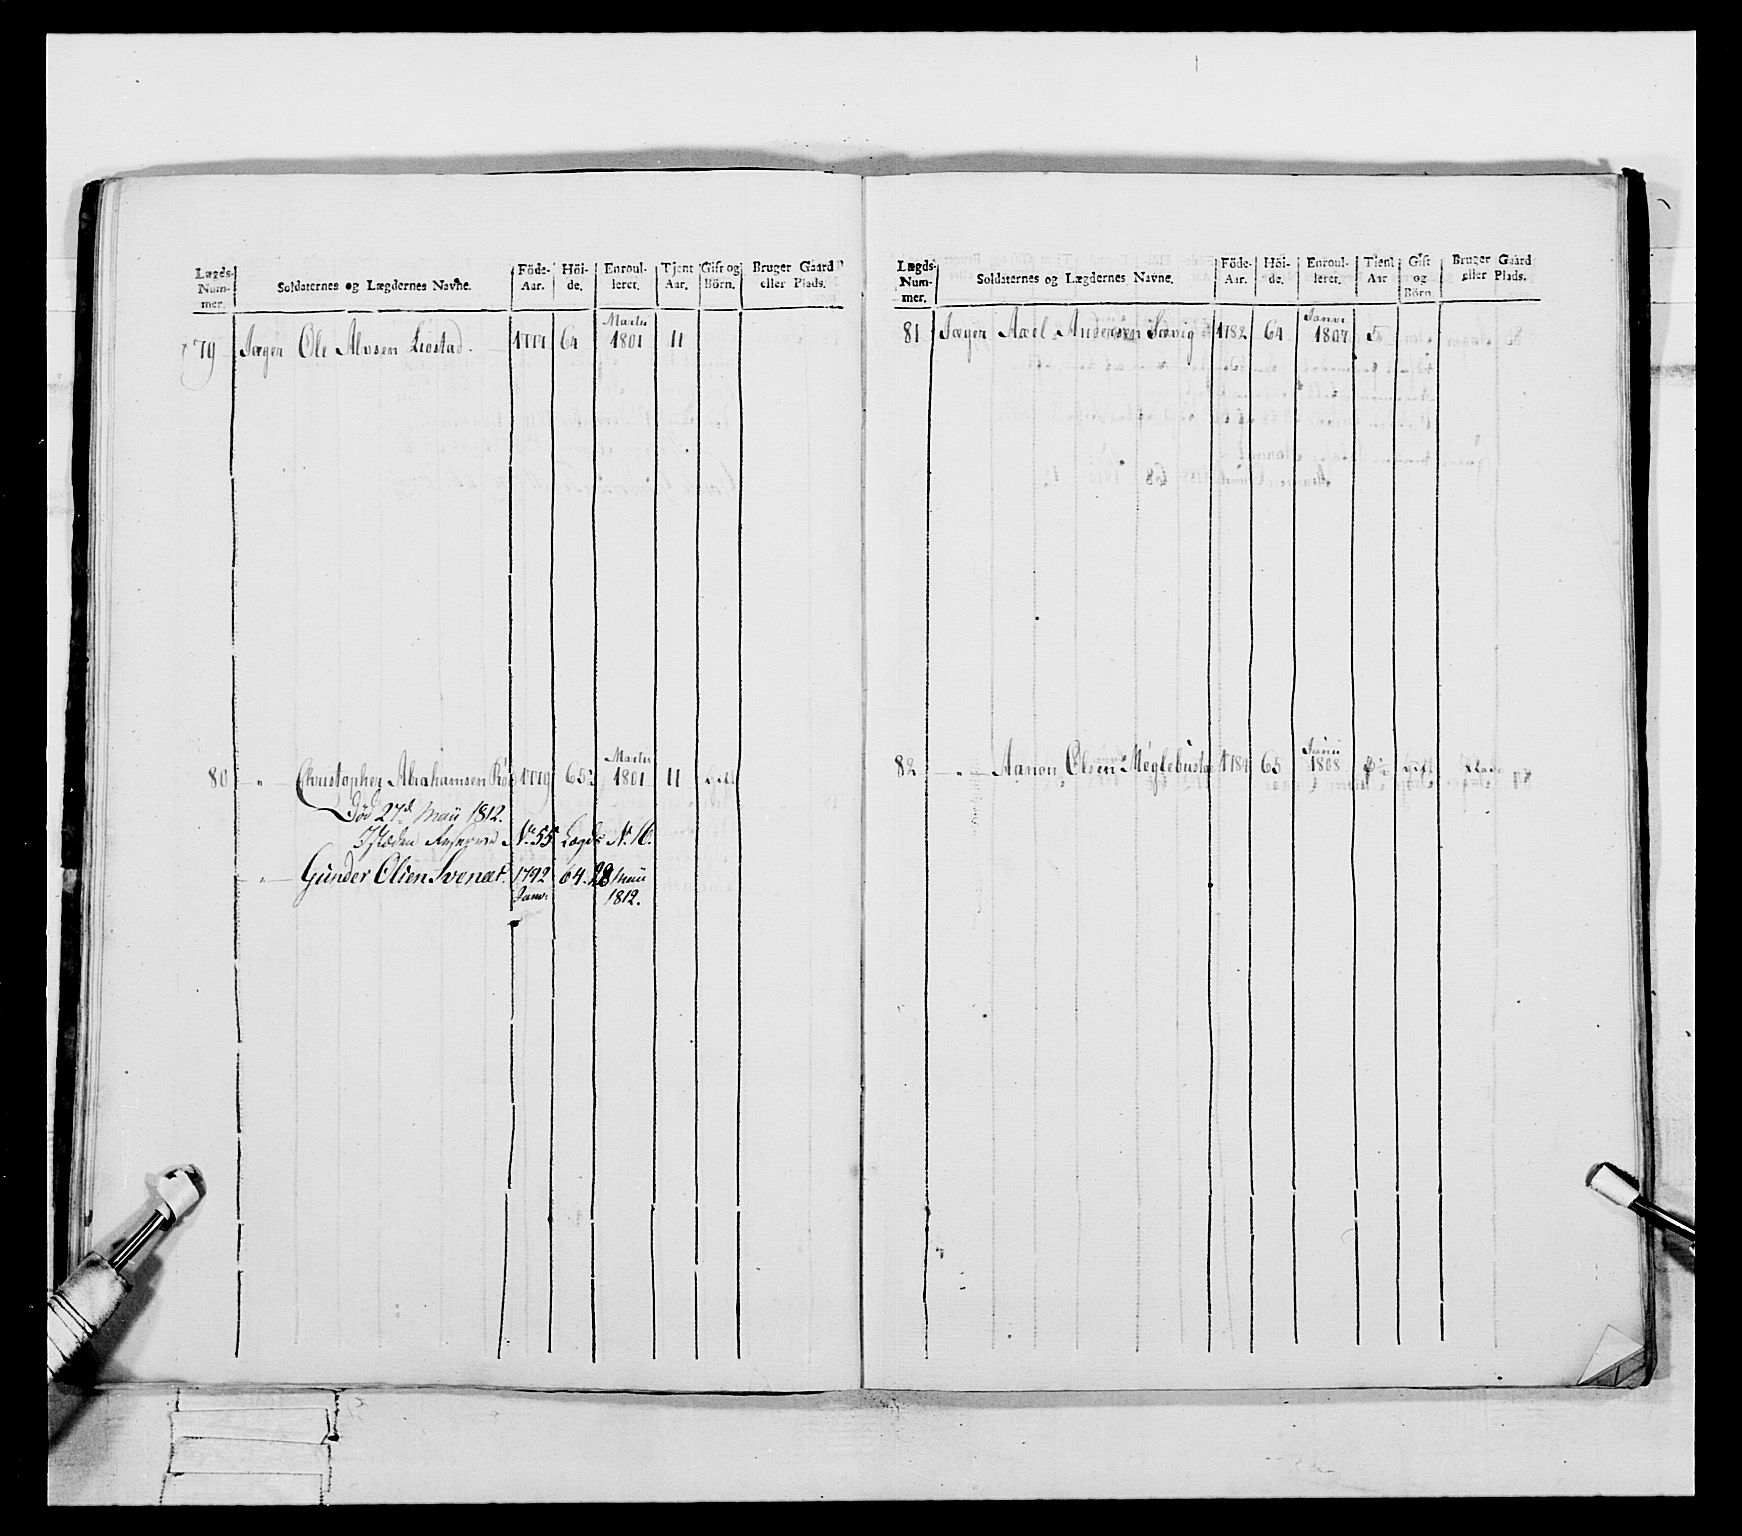 Lægds-Num-mer. Soldaternes og Lægdernes Navne. Föde-Aar. Höi-de. Enroul-leret. Tjent Aar. Gift og Börn. Bruger Gaard eller Plads.
79 Jæger Ole Alvsen Liostad. 1777 64 Martii 1801 11
80 " Christopher Abrahamsen 1779 65½ Martii 1801 11 Gift
Död 27d Maii 1812.
I stæden Reserve No 55 Lægds No 16.
" Gunder Olsen Svenæt. 1792 Janv: 64. 28 Maii 1812.
Lægds-Num-mer. Soldaternes og Lægdernes Navne. Föde-Aar. Höi-de. Enroul-leret. Tjent Aar Gift og Börn. Bruger Gaard eller Plads.
81 Jæger Axel Andersen Sævig 1782 64 Janvr 1807 5
82 " Aanon Olsen Møglebustø 1784 65 Junii 1808 Gift Plads